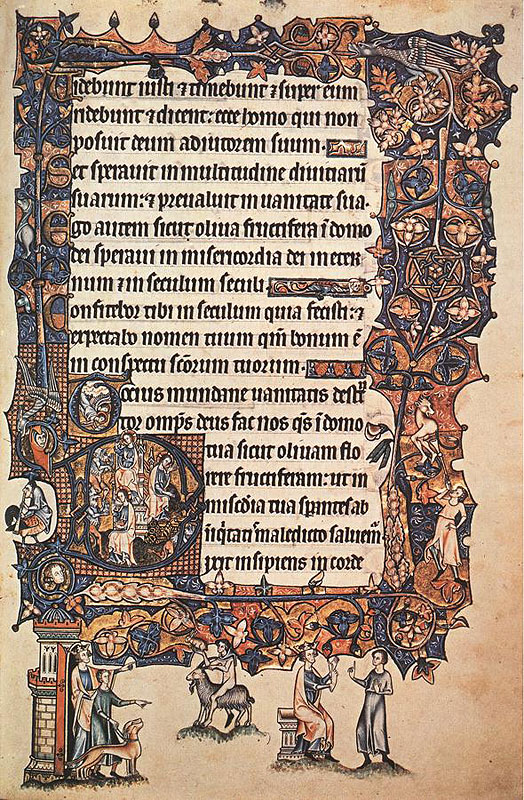 Uidebunt iusti & timebunt & super eum
ridebunt & dicent: ecce homo qui non
posuit deum adiutorem suum.
Set sperauit in multitudine diuitiarū
suarum: & preualuit in uanitate sua.
Ego autem sicut oliua fructifera ī domo
dei speraui in misericordia dei in eter
num & in seculum seculi
Confitebor tibi in seculum quia fecisti: &
expectabo nomen tuum qm̄ bonum ē
in conspectu sc̄orum tuorum.
mundane uanitatis
tor omp̄s deus fac nos qs̄ ī domo
tua sicut oliuam flo
rere fructiferam: ut in
tua ab
maledicto saluem̄
Dixit insipiens in corde